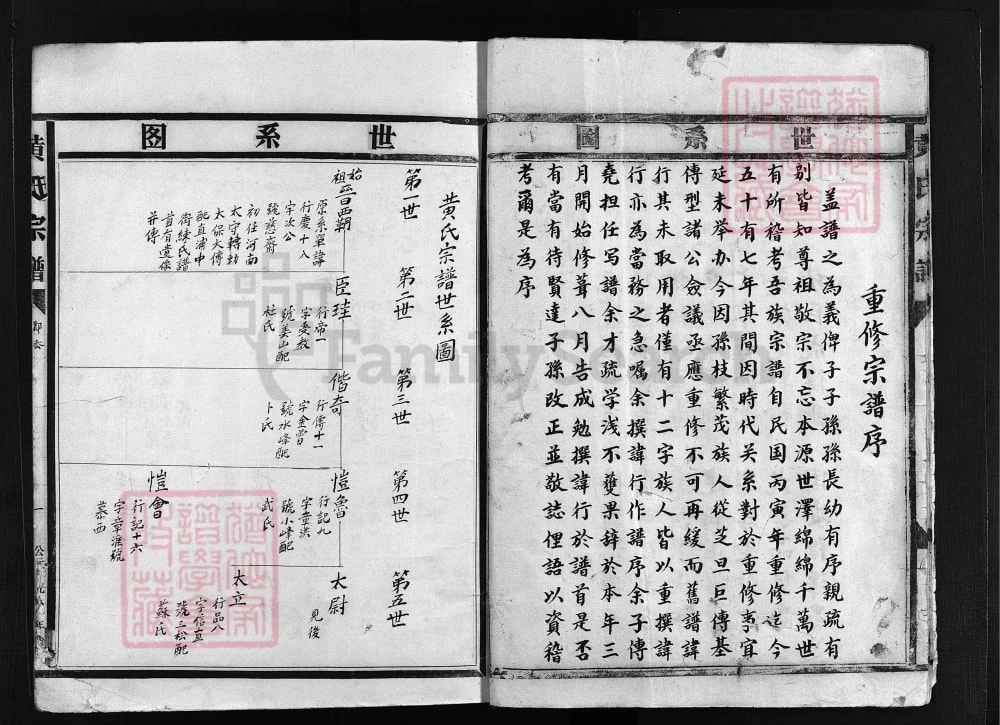 世系圖
重修宗譜序
蓋譜之為義俾子子孫孫長幼有序親疏有
别皆知尊祖敬宗不忘本源世澤綿綿千萬世
有所稽考吾族宗譜自民国丙寅年重修迄今
五十有七年其間因時代关系對於重修事宜
延未举办今因孫枝繁茂族人從芝旦巨傳基
傳型諸公僉議亟應重修不可再緩而舊譜諱
行其未取用者僅有十二字族人皆以重撰諱
行亦為當務之急嘱余撰諱行作譜序余子傳
堯担任写譜余才疏学浅不獲果辞於本年三
月開始修葺八月告成勉撰諱行於譜首是否
有當有待賢達子孫改正並敬誌俚語以資稽
考爾是為序
世系图
黄氏宗譜世系圖
第一世
第二世
第三世
第四世
第五世
始祖
晉西朝
原系單諱
行慶十八
字次公
號慈齋
初任河南
太守轉勅
太保大傅
配直浦中
街練氏譜
首有遺像
并傳
臣珪
行帝一
字愛教
號美山配
杜氏
偕奇
行傳十一
字金雷
號水峰配
卜氏
愷魯
行記九
字童洪
號小峰配
武氏
愷會
行記十六
字章淮號
慕西
太尉
見後
太立
行品八
字信直
號三松配
蘇氏
黄氏宗譜
FamilySearch